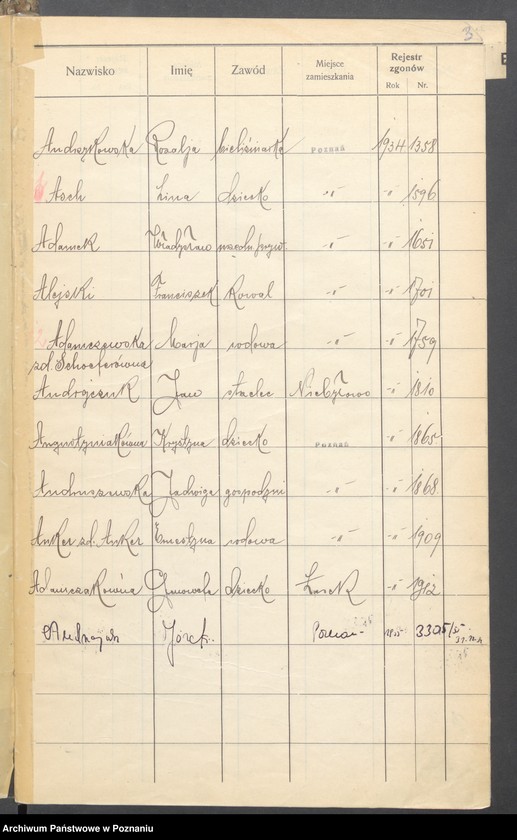 3
Nazwisko Imię Zawód Miejsce zamieszkania Rejestr zgonów Rok Nr.
Andrzkowska Rozalja Poznań 1934 1358
Asch dziecko -"- -"- 1596
Adamek Władysław -"- -"- 1651
Alejski Franciszek Kowal -"- -"- 1701
Adamczewska Marja wdowa -"- -"- 1759
zd. Schoeferówna
Andrzejczuk Jan strzelec -"- 1810
Augustyniakówna Krystyna dziecko Poznań -"- 1865
Andruszewska Jadwiga gospodyni -"- -"- 1868
Anker zd. Anker Ernestyna wdowa -"- -"- 1909
Adamczakówna dziecko -"- 1912
Józef Poznań 3305/35
Archiwum Państwowe w Poznaniu